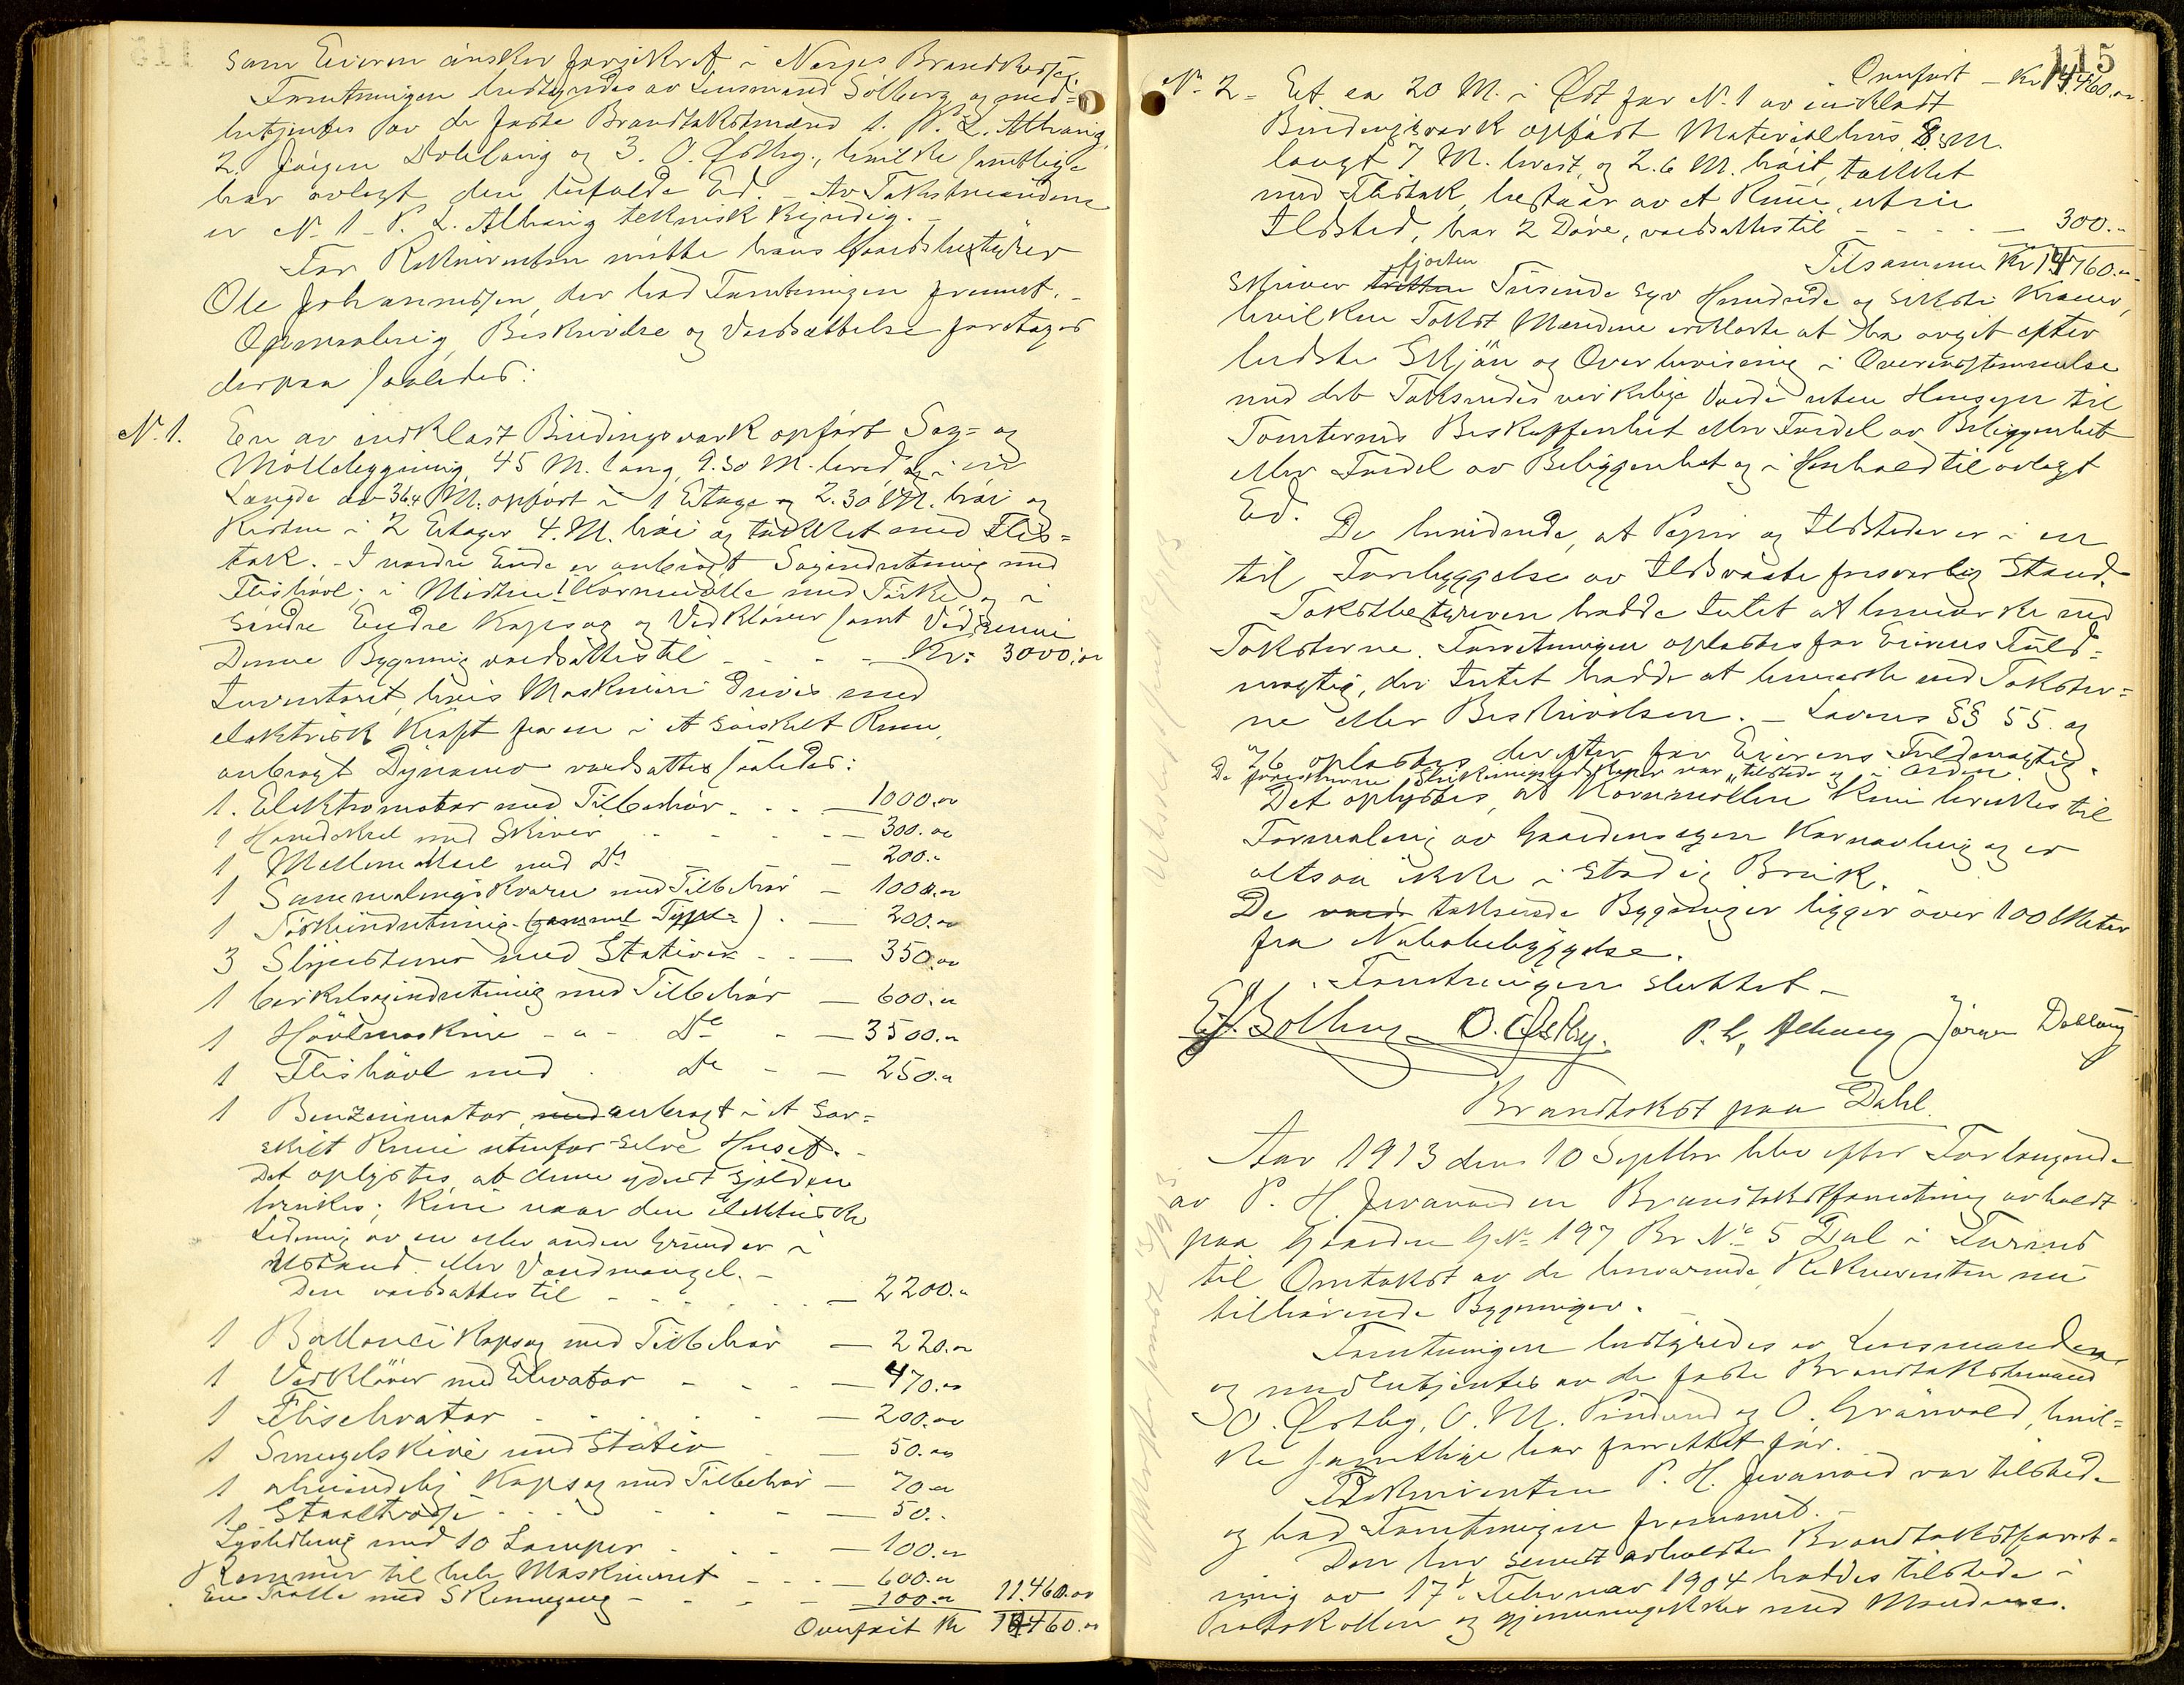 som Eieren ønsker forsikret i Norges Brandkasse.
Forretningen bestyredes av Lensmand Solberg og med-
betjentes av de faste Brandtakstmænd 1. P. L. Alhaug
2. Jørgen Dobloug og 3. O. Østby, hvilke samtlige
har avlagt den befalede Ed. - Av Takstmændene
er No 1 P. L. Alhaug teknisk kyndig. -
For Rekvirenten møtte hans Gaardsbestyrer
Ole Johannessen, der bad Forretningen fremmet. -
Opmaaling, Beskrivelse og Værdsættelse foretages
derpaa saaledes:
No 1. En av indklædt Bindingsverk opført Sag- og
Møllebygning 45 M. lang, 9.30 M. bred, og i en
Længde av 36.4 M. opført i 1 Etage og 2.30 M. høi og
Resten i 2 Etager 4. M. høi og tækket med Flis-
tak. - I nordre Ende er anbragt Sagindretning med
Flishøvl; i Midten Kornmølle med Tørke og i
søndre Ende Kapsag og Vedkløver samt Vedrum
Denne Bygning værdsættes til - - - Kr: 3000.00
Inventaret, hvis Maskineri drives med
elektrisk Kraft fra en i et særskilt Rum,
anbragt Dynamo værdsættes saaledes:
1. Elektromotor med Tilbehør - - - 1000.00
1 Hovedaksel med Skiver - - - 300.00
1 Mellemaksel med Do - 200.-
1 Sammalingskværn med Tilbehør - 1000.00
1 Tørkeindretning (gammel Type) - 200.00
3 Slipestener med Stativer - - 350.00
1 Cirkelsagindretning med Tilbehør - 600.00
1 Høvlmaskine - " - Do - - 3500.00
1 Flishøvl med . Do - - 250.00
1 Benzinmotor, med anbragt i et sær-
skilt Rum utenfor selve Huset. -
Det oplystes, at denne yderst sjelden
brukes; kun naar den elektriske
Ledning av en eller anden Grund er i
Ustand eller Vandmangel. -
Den værdsættes til - - - 2200.-
1 Ballance Kapsag med Tilbehør - 220.00
1 Vedkløver med Elevator - - - 470.00
1 Fliselevator - - - 200.00
1 Smergelskive med Stativ - 50.00
1 almindelig Kapsag med Tilbehør - 70.00
1 Staaltrosse - - - 50.-
Lysledning med 10 Lamper - - - 100.00
Remmer til hele Maskineriet - - - 600.00
En Tralle med Skinnegang - - - 100.00 11.460.00
Overført Kr 14460.00
115
Overført - Kr 14460.00
No 2 - Et ca 20 M. i Øst for No 1 av indklædt
Bindingsverk opført Materialhus, 8. M.
langt 7 M. bredt, og 2.6 M. høit, tækket
med Flistak, bestaar av et Rum, uten
Ildsted, har 2 Døre, værdsættes til - - - 300.-
Tilsammen Kr 14760.-
fjorten
skriver tretten Tusende syv Hundrede og seksti Kroner,
hvilken Takst Mændene erklærte at ha avgit efter
bedste Skjøn og Overbevisning i Overensstemmelse
med det Takseredes virkelige Værdi uten Hensyn til
Tomternes Beskaffenhet eller Fordel av Beliggenhet
eller Fordel av Beliggenhet og i Henhold til avlagt
Ed.
De bevidnede, at Peper og Ildsteder er i en
til Forebyggelse av Ildsvaade forsvarlig Stand.
Takstbestyreren hadde Intet at bemærke ved
Taksterne. Forretningen oplæstes for Eierens Fuld-
mægtig, der Intet hadde at bemærke ved Takster-
ne eller Beskrivelsen. - Lovens §§ 55 og
76 oplæstes derefter for Eierens Fuldmægtig.
De foreskrevne Slukningsredskaper var tilstede og i Orden.
Det oplystes, at Kornmøllen kun brukes til
Formaling av Gaardens egen Kornavling og er
altsaa ikke i stadig Bruk.
De værd takserede Bygninger ligger over 100 Meter
fra Nabobebyggelse.
Forretningen sluttet -
Ef. Solberg O. Østby. P. L. Alhaug Jørgen Dobloug
Brandtakst paa Dahl.
Aar 1913 den 10 Septbr blev efter Forlangende
av P. H. Juvanæd en Brandtakstforretning avholdt
paa Gaarden G No 197 Br No 5 Dal i Furnes
til Omtakst av de henværende Rekvirenten nu
tilhørende Bygninger. -
Forretningen bestyredes av Lensmanden
og medbetjentes av de faste Brandtakstmænd
O. Østby, O. M. Pinderud og O. Grønvold, hvil-
ke samtlige har forrettet før.
Rekvirenten P. H. Juvanæd var tilstede
og bad Forretningen fremmet. -
Den her senest avholdte Brandtakstforret-
ning av 17de Februar 1904 haddes tilstede i
Protokollen og gjennemgikkes med Mændene.